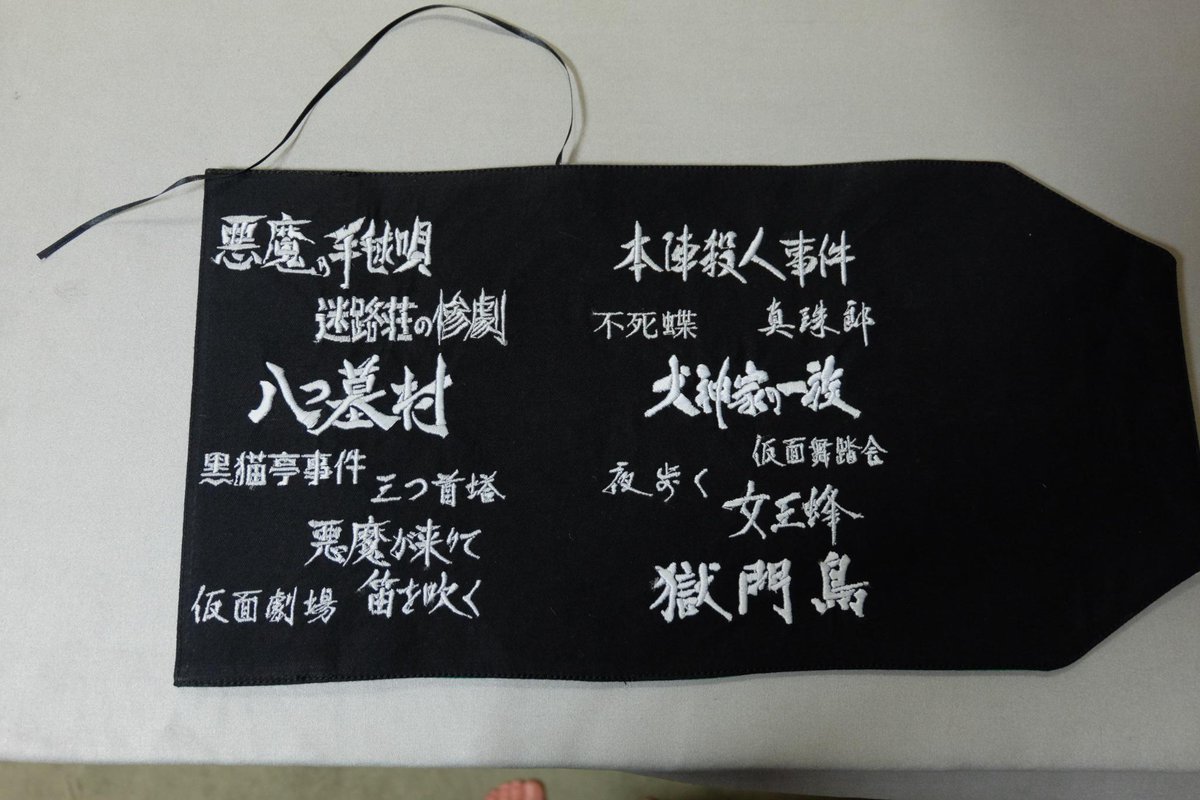 悪魔の手毬唄
迷路荘の惨劇
八つ墓村
黒猫亭事件
三つ首塔
悪魔が来りて
笛を吹く
仮面劇場
本陣殺人事件
不死蝶
真珠郎
犬神家の一族
仮面舞踏会
夜歩く
女王蜂
獄門島